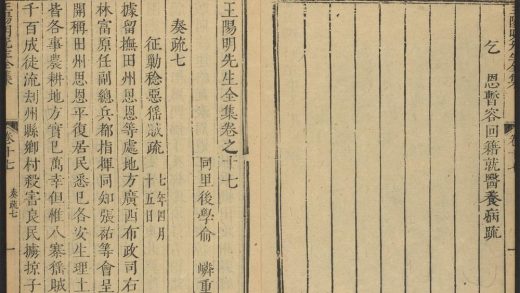 乞
恩暫容回籍就醫養病疏
王陽明先生全集卷之十七
同里後學俞 嶙重
奏疏七
征勦稔惡猺賊疏 七年四月
十五日
據留撫田州思恩等處地方廣西布政司右
林富原任副總兵都指揮同知張祐等會呈
開稱田州思恩平復居民悉已各安生理土
皆各事農耕地方實已萬幸但惟八寨猺賊
千百成徒流刦州縣鄉村殺害良民擄掠子
王陽明先生全集 卷十七 奏疏七 一